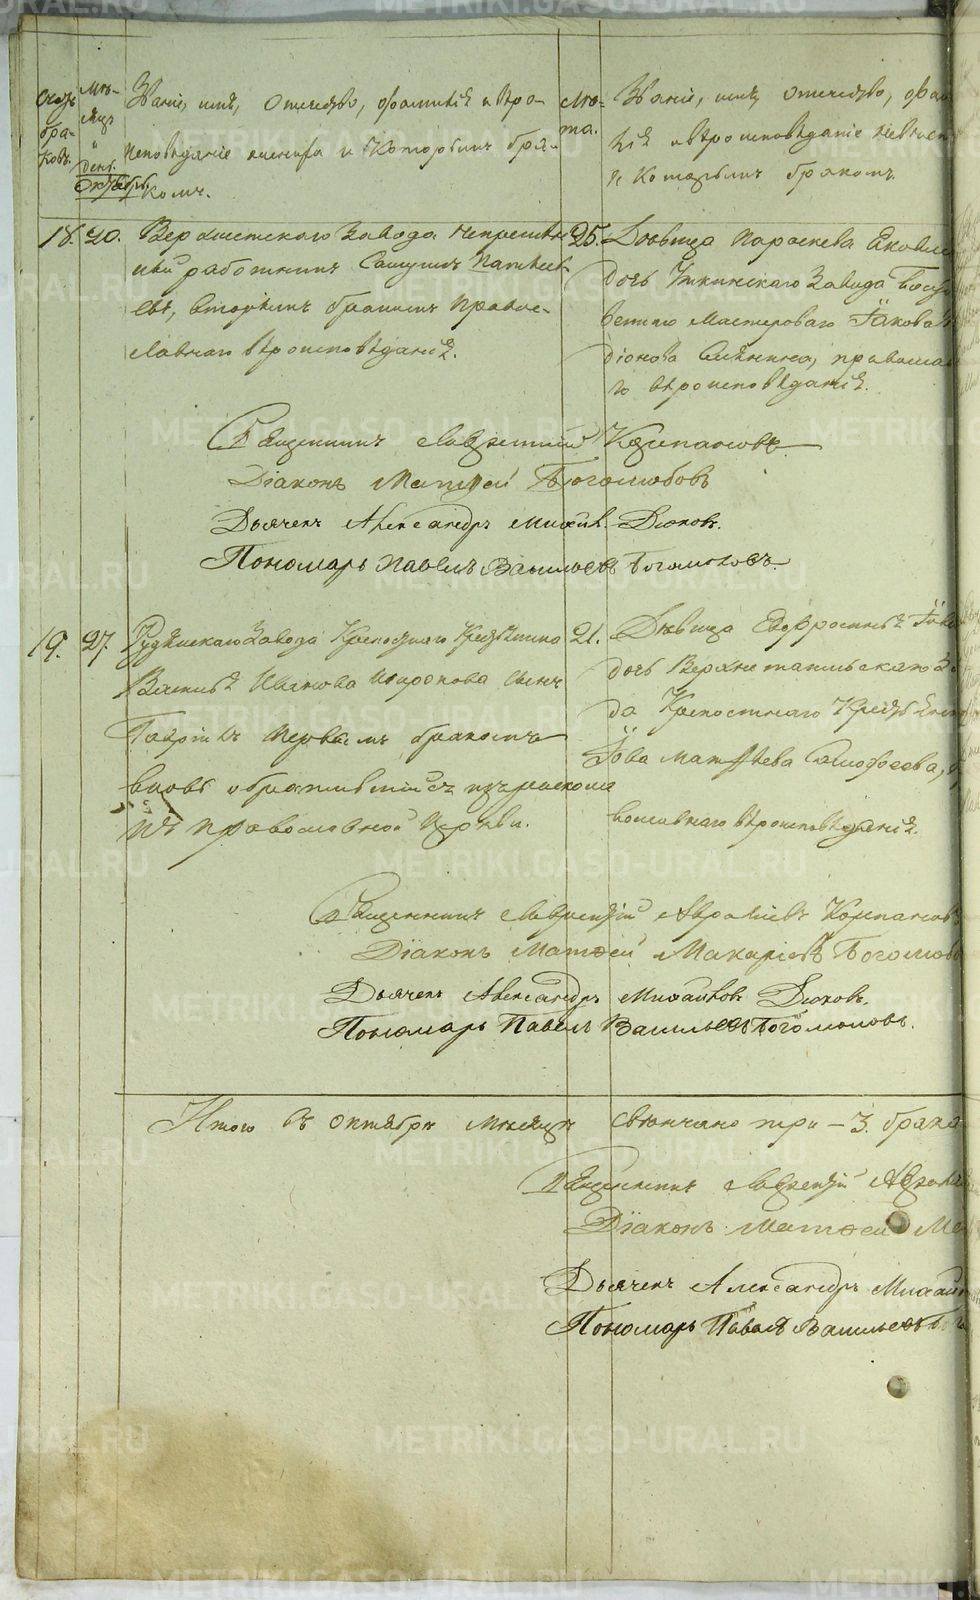 Счетъ бра-ковъ.
Мѣ-сяцъ и день.
Октябрь
Званіе, имя, отечество, фамилія и вѣро-
исповѣданіе жениха и которымъ бра-
комъ.
Лѣ-та.
Званіе, имя, отечество, фами
лія и вѣроисповѣданіе невѣст
и которымъ бракомъ.
18. 20. Верхисетскаго Завода непремѣн
ный работникъ
вторымъ бракомъ Право-
славнаго вѣроисповѣданія.
25. Дѣвица Параскева Яковл
дочь Уткинскаго Завода
Мастероваго Іакова
діонова православна
го вѣроисповѣданія.
Священникъ Лаврентій
Діаконъ Матѳей Боголюбовъ
Дьячекъ Александръ Михайл. Дюковъ.
Пономарь Павелъ Васильевъ Богомоловъ.
19. 27. Рудянскаго Завода Крепостнаго Крестьянина
Василья Иванова сынъ
Гаврiилъ первымъ бракомъ
вновь обратившійся изъ раскола
къ православной Церкви.
21. Дѣвица Евфросинья Іовл
дочь Верхнетагильскаго Заво
да Крепостнаго Крестьянин
Іова Матѳѣева
вославнаго вѣроисповѣданія.
Священникъ Лаврентій
Діаконъ Матѳей Макаріевъ Боголюбо
Дьячекъ Александръ Михайловъ Дюковъ.
Пономарь Павелъ Васильевъ Богомоловъ.
Итого въ Октябрѣ Мѣсяцѣ свѣнчано три – 3. брака
Священникъ Лаврентій
Діаконъ Матѳей Ма
Дьячекъ Александръ Михайл
Пономарь Павелъ Васильевъ Бо
METRIKI.GASO-URAL.RU